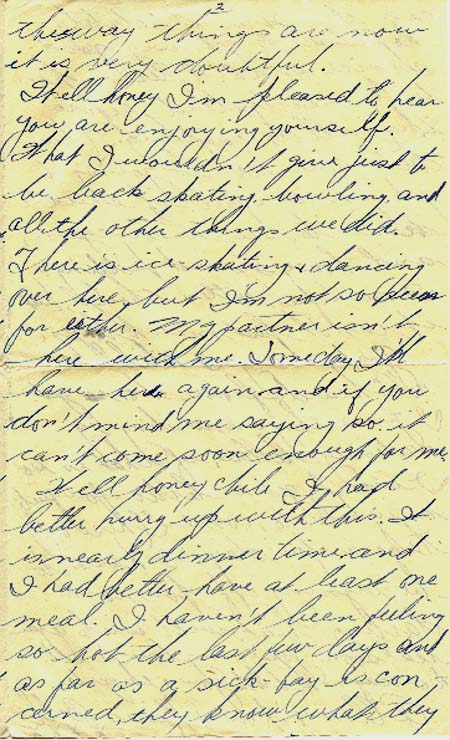 2
the way things are now
it is very doubtful.
Well honey I'm pleased to hear
you are enjoying yourself.
What I wouldn't give just to
be back skating, bowling, and
all the other things we did.
There is ice-skating & dancing
over here, but I'm not so keen
for either. My partner isn't
here with me. Someday I'll
have her again and if you
don't mind me saying so it
can't come soon enough for me.
Well honey chile I had
better hurry up with this. It
is nearly dinner time and
I had better have at least one
meal. I haven't been feeling
so hot the last few days and
as far as a sick-bay is con-
cerned, they know what they